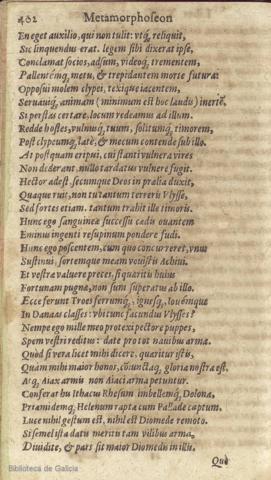 402 Metamorphoseon
En eget auxilio, qui non tulit: vtq́, reliquit,
Sic linquendus erat. legem sibi dixerat ipse,
Conclamat socios, adsum, videoq́, trementem,
Pallentémq, metu, & trepidantem morte futura:
Opposui molem clypei, texique iacentem,
Seruauiq́, animam (minimum est hoc laudis) inertē,
Si perstas certare, locum redeamus ad illum.
Redde hostes, vulnusq́, tuum, solitumq́, timorem,
Post clypeumq́, late, & mecum contende sub illo.
At postquam eripui, cui standi vulnera vires
Non dederant, nullo tardatus vulnere fugit.
Hector adest, secumque Deos in prælia duxit,
Quaque ruit, non tu tantum terreris Vlysse,
Sed fortes etiam. tantum trahit ille timoris.
Hunc ego sanguinea successu cædis ouantem
Eminus ingenti resupinum pondere fudi.
Hunc ego poscentem, cum quo concurreret, vnus
Sustinui, sortemque meam vouistis Achiui.
Et vestræ valuere preces, si quæritis huius
Fortunam pugnæ, non sum superatus ab illo.
Ecce ferunt Troes ferrumq́, ignesq́, Iouémque
In Danaas classes: vbi tunc facundus Vlysses?
Nempe ego mille meo protexi pectore puppes,
Spem vestri reditus: date pro tot nauibus arma.
Quod si vera licet mihi dicere, quæritur istis,
Quàm mihi maior honos, cōiunctaq́, gloria nostra est.
Atq́, Aiax armis non Aiaci arma petuntur.
Conferat his Ithacus Rhesum imbellemq́, Dolona,
Priamidemq́, Helenum rapta cum Pallade captum.
Luce nihil gestum est, nihil est Diomede remoto.
Si semel ista datis meritis tam vilibus arma,
Diuidite, & pars sit maior Diomedis in illis.
Quò
Biblioteca de Galicia